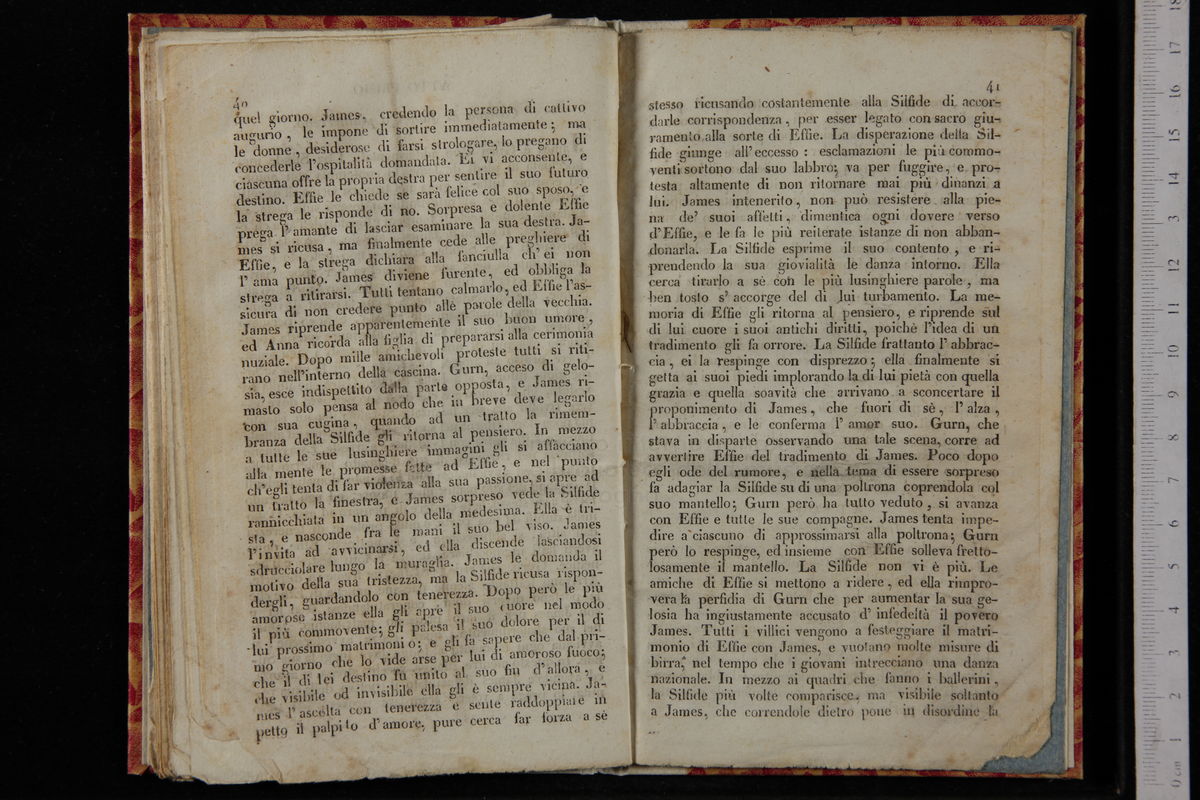 40
quel giorno. James, credendo la persona di cattivo
augurio, le impone di sortire immediatamente; ma
le donne, desiderose di farsi strologare, lo pregano di
concederle l'ospitalità domandata. Ei vi acconsente, e
ciascuna offre la propria destra per sentire il suo futuro
destino. Effie le chiede se sarà felice col suo sposo, e
la strega le risponde di no. Sorpresa e dolente Effie
prega l'amante di lasciar esaminare la sua destra. Ja-
mes si ricusa, ma finalmente cede alle preghiere di
Effie, e la strega dichiara alla fanciulla ch'ei non
l'ama punto. James diviene furente, ed obbliga la
strega a ritirarsi. Tutti tentano calmarlo, ed Effie l'as-
sicura di non credere punto alle parole della vecchia.
James riprende apparentemente il suo buon umore,
ed Anna ricorda alla figlia di prepararsi alla cerimonia
nuziale. Dopo mille amichevoli proteste tutti si riti-
rano nell'interno della cascina. Gurn, acceso di gelo-
sia, esce indispettito dalla parte opposta, e James ri-
masto solo pensa al nodo che in breve deve legarlo
con sua cugina, quando ad un tratto la rimem-
branza della Silfide gli ritorna al pensiero. In mezzo
a tutte le sue lusinghiere immagini gli si affacciano
alla mente le promesse fatte ad Effie, e nel punto
ch'egli tenta di far violenza alla sua passione, si apre ad
un tratto la finestra, e James sorpreso vede la Silfide
rannicchiata in un angolo della medesima. Ella è tri-
sta, e nasconde fra le mani il suo bel viso. James
l'invita ad avvicinarsi, ed ella discende lasciandosi
sdrucciolare lungo la muraglia. James le domanda il
motivo della sua tristezza, ma la Silfide ricusa rispon-
dergli, guardandolo con tenerezza. Dopo però le più
amorose istanze ella gli apre il suo cuore nel modo
il più commovente; gli palesa il suo dolore per il di
lui prossimo matrimonio; e gli fa sapere che dal pri-
mo giorno che lo vide arse per lui di amoroso fuoco;
che il di lei destino fu unito al suo fin d'allora, e
che visibile od invisibile ella gli è sempre vicina. Ja-
mes l'ascolta con tenerezza e sente raddoppiare in
petto il palpito d'amore, pure cerca far forza a sè
41
stesso ricusando costantemente alla Silfide di accor-
darle corrispondenza, per esser legato con sacro giu-
ramento alla sorte di Effie. La disperazione della Sil-
fide giunge all'eccesso: esclamazioni le più commo-
venti sortono dal suo labbro; va per fuggire, e pro-
testa altamente di non ritornare mai più dinanzi a
lui. James intenerito, non può resistere alla pie-
na de' suoi affetti, dimentica ogni dovere verso
d'Effie, e le fa le più reiterate istanze di non abban-
donarla. La Silfide esprime il suo contento, e ri-
prendendo la sua giovialità le danza intorno. Ella
cerca tirarlo a sè con le più lusinghiere parole, ma
ben tosto s'accorge del di lui turbamento. La me-
moria di Effie gli ritorna al pensiero, e riprende sul
di lui cuore i suoi antichi diritti, poichè l'idea di un
tradimento gli fa orrore. La Silfide frattanto l'abbrac-
cia, ei la respinge con disprezzo; ella finalmente si
getta ai suoi piedi implorando la di lui pietà con quella
grazia e quella soavità che arrivano a sconcertare il
proponimento di James, che fuori di sè, l'alza,
l'abbraccia, e le conferma l'amor suo. Gurn, che
stava in disparte osservando una tale scena, corre ad
avvertire Effie del tradimento di James. Poco dopo
egli ode del rumore, e nella tema di essere sorpreso
fa adagiar la Silfide su di una poltrona coprendola col
suo mantello; Gurn però ha tutto veduto, si avanza
con Effie e tutte le sue compagne. James tenta impe-
dire a ciascuno di approssimarsi alla poltrona; Gurn
però lo respinge, ed insieme con Effie solleva fretto-
losamente il mantello. La Silfide non vi è più. Le
amiche di Effie si mettono a ridere, ed ella rimpro-
vera la perfidia di Gurn che per aumentar la sua ge-
losia ha ingiustamente accusato d'infedeltà il povero
James. Tutti i villici vengono a festeggiare il matri-
monio di Effie con James, e vuotano molte misure di
birra, nel tempo che i giovani intrecciano una danza
nazionale. In mezzo ai quadri che fanno i ballerini,
la Silfide più volte comparisce, ma visibile soltanto
a James, che correndole dietro pone in disordine la
0 cm 1 2 3 4 5 6 7 8 9 10 11 12 13 14 15 16 17 18